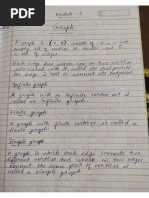 Module - 3
Graph
A graph G = (V, E) consist of V, a
empty set of vertices or nodes and E
a set of edges.
Each edge has either one or two vertices
associated with it called its endpoints
An edge is said to connect its endpoint
Infinite graph
A graph with an infinite vertex set is
called an infinite graph.
Finite graph
A graph with finite vertices is called a
finite graph.
Simple graph
A graph in which each edge connects two
different vertices and where no two edges
connect the same pair of vertices is
called a simple graph.